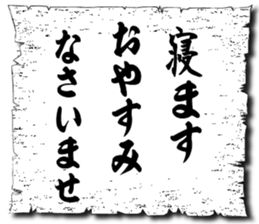 寝ます
おやすみ
なさいませ